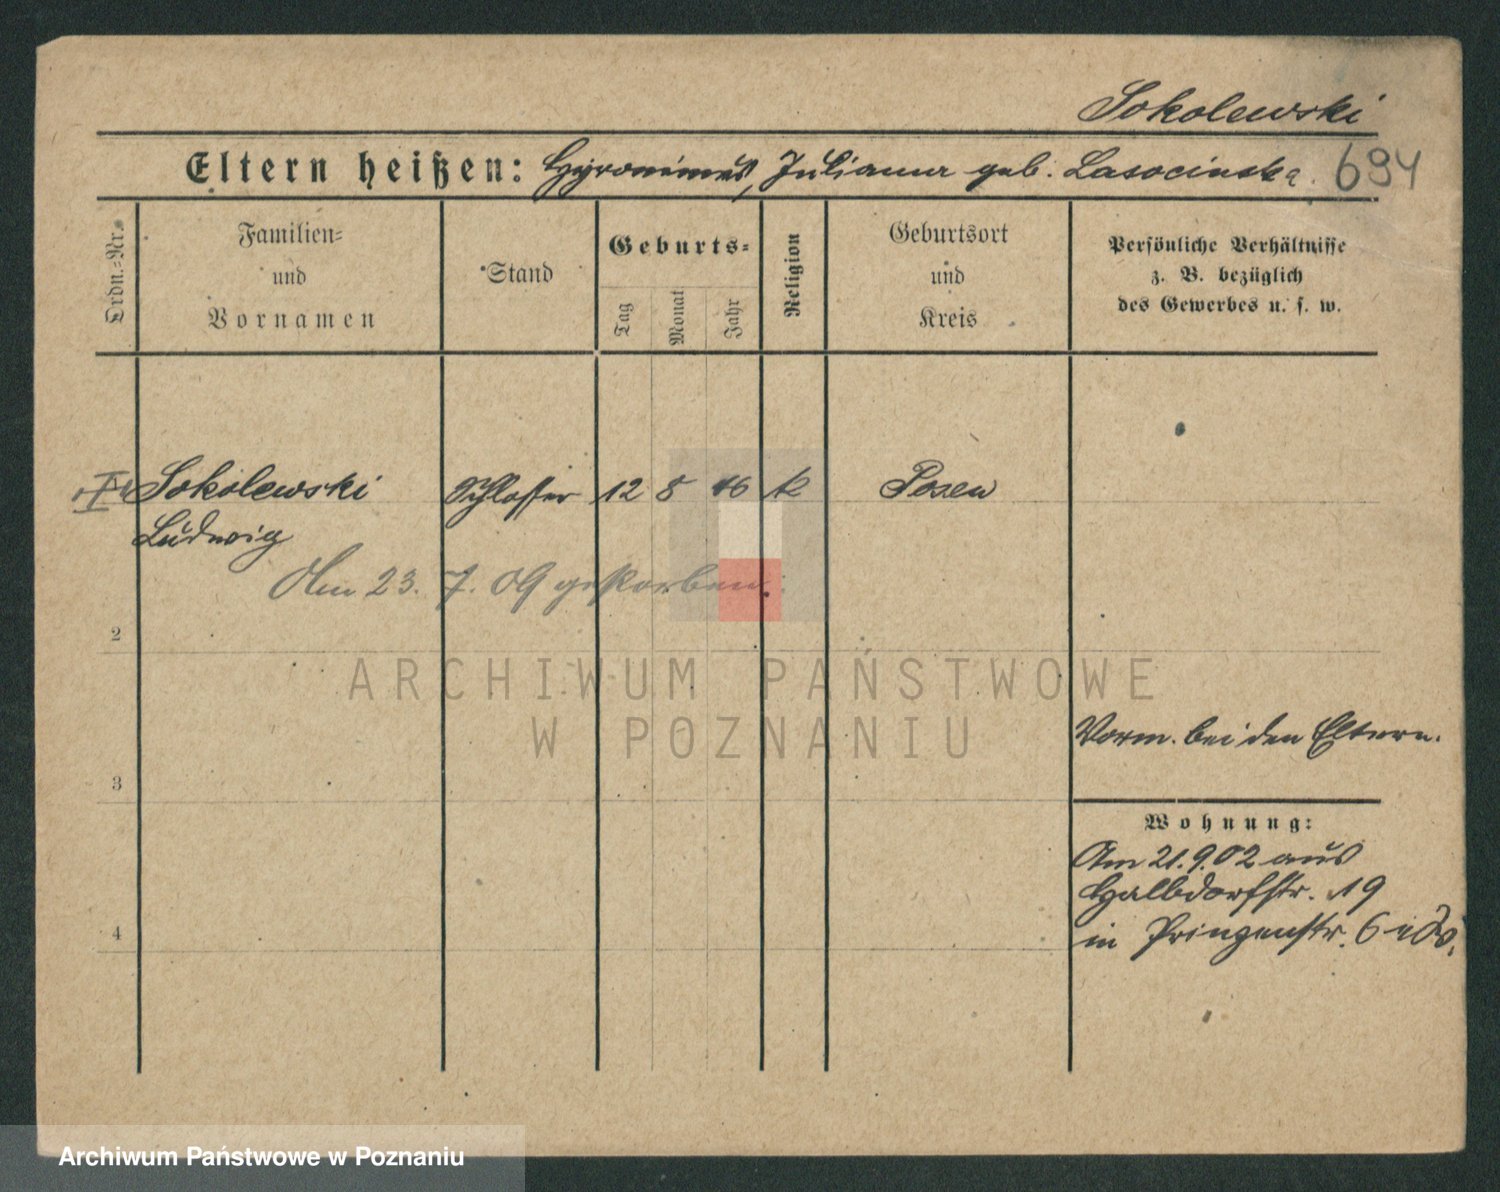 Sokolewski
Eltern heißen: Hyronimus, Julianna geb. Lasocinska. 694
Ordn.-Nr.
Familien-
und
Vornamen
Stand
Geburts-
Tag
Monat
Jahr
Religion
Geburtsort
und
Kreis
Persönliche Verhältnisse
z. B. bezüglich
des Gewerbes u. s. w.
Sokolewski Schlosser 12 8 46 k Posen
Ludwig
Am 23. 7. 09 gestorben.
2
ARCHIWUM PAŃSTWOWE
W POZNANIU
Vorm. bei den Eltern.
3
Wohnung:
Am 21.9.02 aus
Halbdorfstr. 19
in Prinzenstr. 6
4
Archiwum Państwowe w Poznaniu